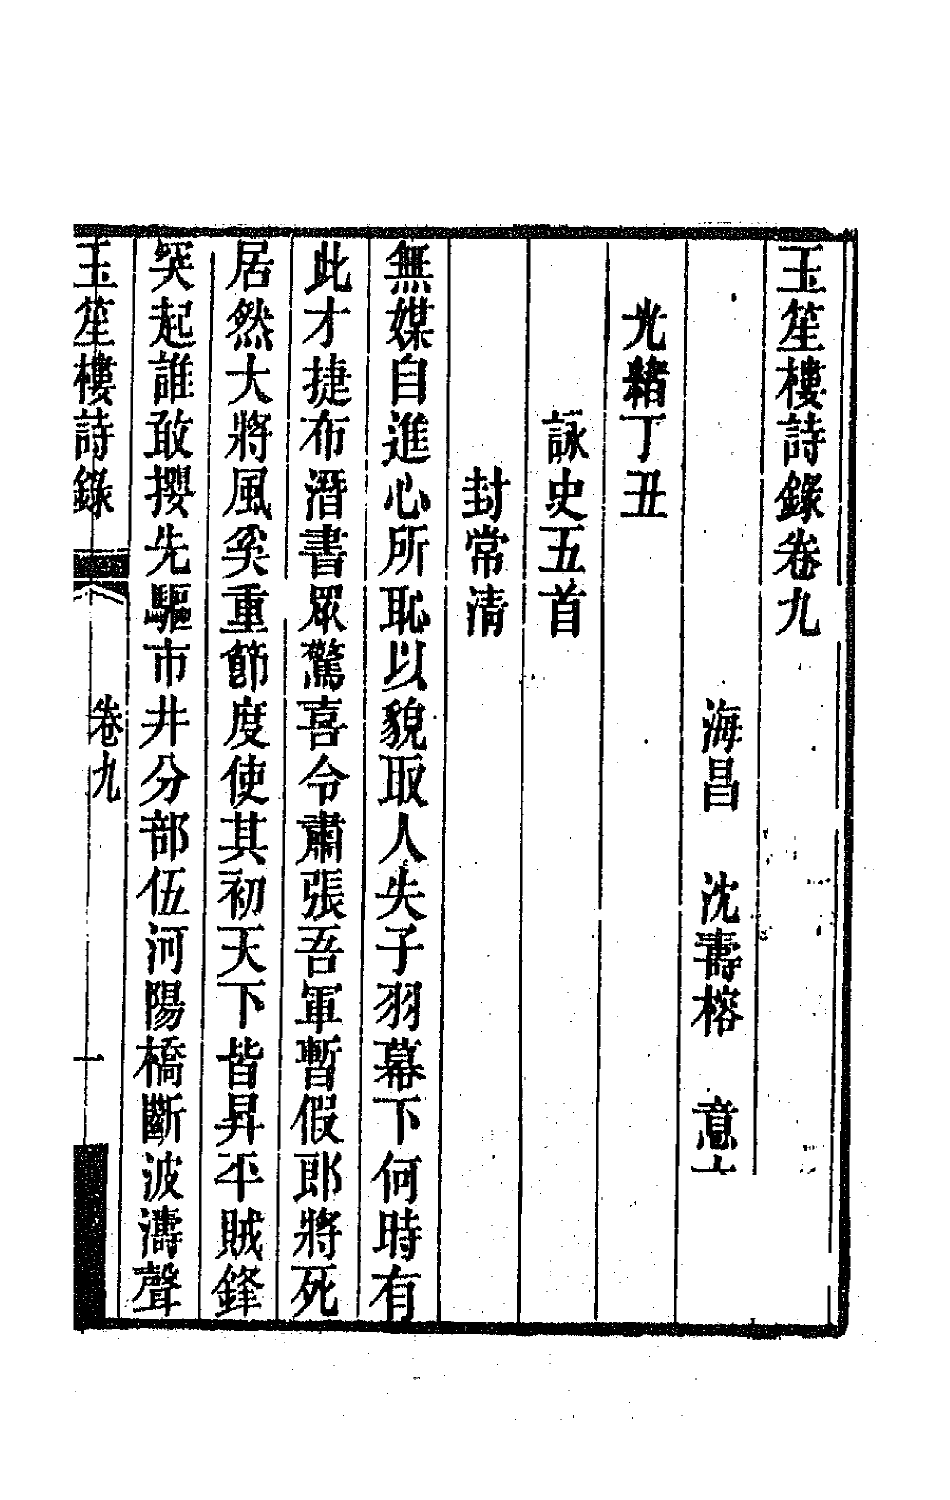 玉笙樓詩錄卷九
海昌　沈壽榕　意
光緒丁丑
詠史五首
封常清
無媒自進心所恥以貌取人失子羽幕下何時有
此才捷布潛書眾驚喜令肅張吾軍暫假郎將死
居然大將風奚重節度使其初天下皆昇平賊鋒
突起誰敢攖先驅市井分部伍河陽橋斷波濤聲
玉笙樓詩錄　卷九　一